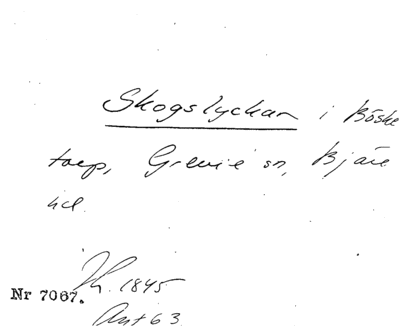 Skogslyckan i Böske
torp, Grevie sn, Bjäre
hd.
Nr 7067. Th. 1845
Ant 63